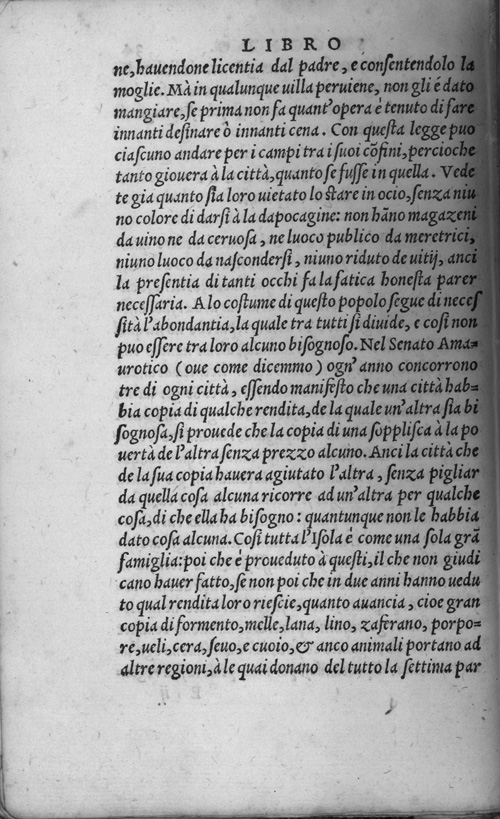 LIBRO
ne, hauendone licentia dal padre, e consentendolo la
moglie. Mà in qualunque uilla peruiene, non gli é dato
mangiare, se prima non fa quant'opera è tenuto di fare
innanti desinare ò innanti cena. Con questa legge puo
ciascuno andare per i campi tra i suoi cõfini, percioche
tanto giouera à la città, quanto se fusse in quella. Vede
te gia quanto sia loro uietato lo stare in ocio, senza niu
no colore di darsi à la dapocagine: non hãno magazeni
da uino ne da ceruosa, ne luoco publico da meretrici,
niuno luoco da nascondersi, niuno riduto de uitij, anci
la presentia di tanti occhi fa la fatica honesta parer
necessaria. A lo costume di questo popolo segue di necess
sità l'abondantia, la quale tra tutti si diuide, e cosi non
puo essere tra loro alcuno bisognoso. Nel Senato Ama=
urotico (oue come dicemmo) ogn'anno concorrono
tre di ogni città, essendo manifesto che una città hab=
bia copia di qualche rendita, de la quale un'altra sia bi
sognosa, si prouede che la copia di una sopplisca à la po
uertà de l'altra senza prezzo alcuno. Anci la città che
de la sua copia hauera agiutato l'altra, senza pigliar
da quella cosa alcuna ricorre ad un'altra per qualche
cosa, di che ella ha bisogno: quantunque non le habbia
dato cosa alcuna. Cosi tutta l'Isola é come una sola grã
famiglia: poi che é proueduto à questi, il che non giudi
cano hauer fatto, se non poi che in due anni hanno uedu
to qual rendita loro riescie, quanto auancia, cioe gran
copia di formento, melle, lana, lino, zaferano, porpo=
re, ueli, cera, seuo, e cuoio, & anco animali portano ad
altre regioni, à le quai donano del tutto la settima par